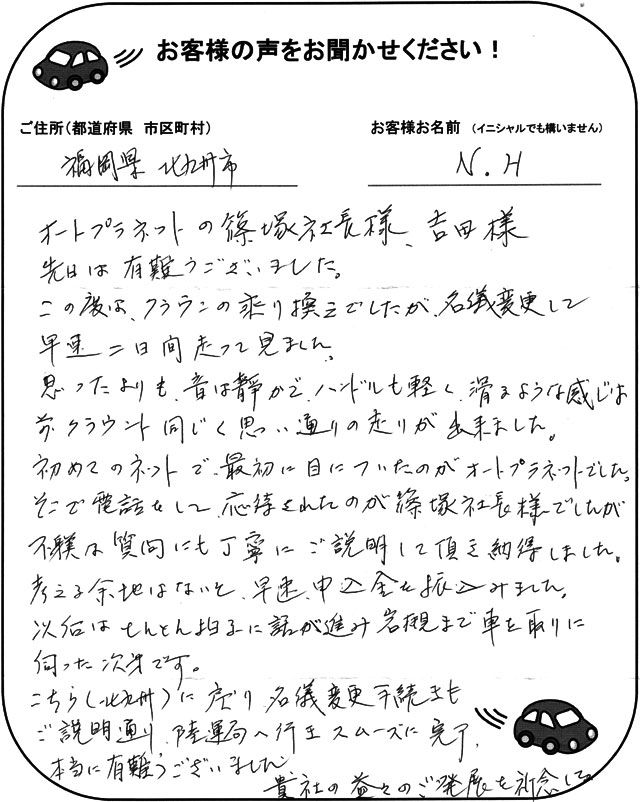 お客様の声をお聞かせください！
ご住所（都道府県　市区町村）
お客様お名前　（イニシャルでも構いません）
福岡県　北九州市
N.H
オートプラネットの篠塚社長様、吉田様
先日は有難うございました。
この度は、クラウンの乗り換えでしたが、名儀変更して
早速二日間走って見ました。
思ったよりも、音は静かで、ハンドルも軽く、滑るような感じは
前クラウント同じく思い通りの走りが出来ました。
初めてのネットで、最初に目についたのがオートプラネットでした。
そこで電話をして、応待されたのが篠塚社長様でしたが
不躾な質問にも丁寧にご説明して頂き納得しました。
考える余地はないと、早速、申込金を振込みました。
以后はとんとん拍子に話が進み岩槻まで車を取りに
伺った次第です。
こちら（北九州）に戻り、名儀変更手続きも
ご説明通り、陸運局へ行きスムーズに完了、
本当に有難うございました
貴社の益々のご発展を祈念して